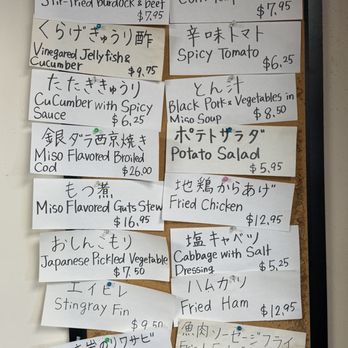 Stir-fried Burdock & Beef
$7.95
くらげきゅうり酢
Vinegared Jellyfish &
Cucumber
$9.75
たたききゅうり
CuCumber with Spicy
Sauce
$6.25
銀ダラ西京焼き
Miso Flavored Broiled
Cod
$26.00
もつ煮
Miso Flavored Guts Stew
$16.95
おしんこもり
Japanese Pickled Vegetable
$7.50
エイヒレ
Stingray Fin
$9.50
$7.95
辛味トマト
Spicy Tomato
$6.25
とん汁
Black Pork & Vegetables in
Miso Soup
$8.50
ポテトサラダ
Potato Salad
$5.95
地鶏からあげ
Fried Chicken
$12.95
塩キャベツ
Cabbage with Salt
Dressing
$5.25
ハムカツ
Fried Ham
$12.95
魚肉ソーセージフライ